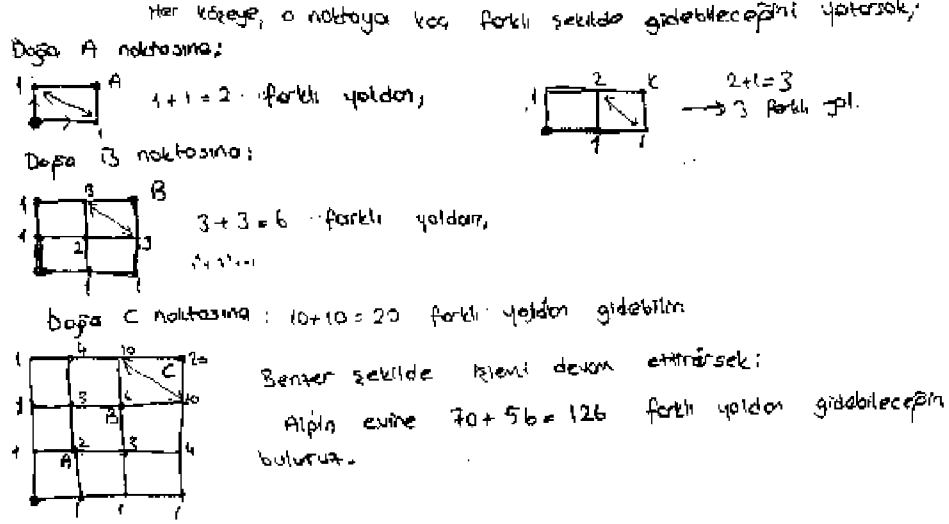 Her köşeye, o noktaya kaç farklı şekilde gidebileceğini yazarsak;
Doğa A noktasına;
1 A
1+1=2 farklı yoldan,
1
1 2 C
1 1
2+1=3
→ 3 farklı yol.
Doğa B noktasına:
1 3 B
1 2 3
1 1
3+3=6 farklı yoldan,
Doğa C noktasına: 10+10=20 farklı yoldan gidebilir.
1 4 10 20
C
1 3 6 10
B
1 2 3 4
A
1 1 1
Benzer şekilde işlemi devam ettirirsek;
Alp'in evine 70+56=126 farklı yoldan gidebileceğin
buluruz.